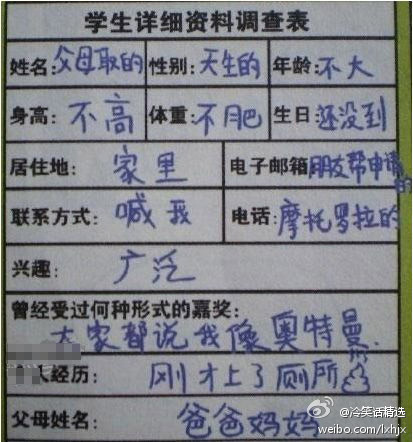 学生详细资料调查表
姓名:父母取的 性别:天生的 年龄:不大
身高:不高 体重:不肥 生日:还没到
居住地:家里 电子邮箱 朋友帮申请的
联系方式:喊我 电话:摩托罗拉的
兴趣:广泛
曾经受过何种形式的嘉奖:
大家都说我像奥特曼.
人经历:刚才上了厕所
父母姓名:爸爸妈妈
@冷笑话精选
weibo.com/lxhjx